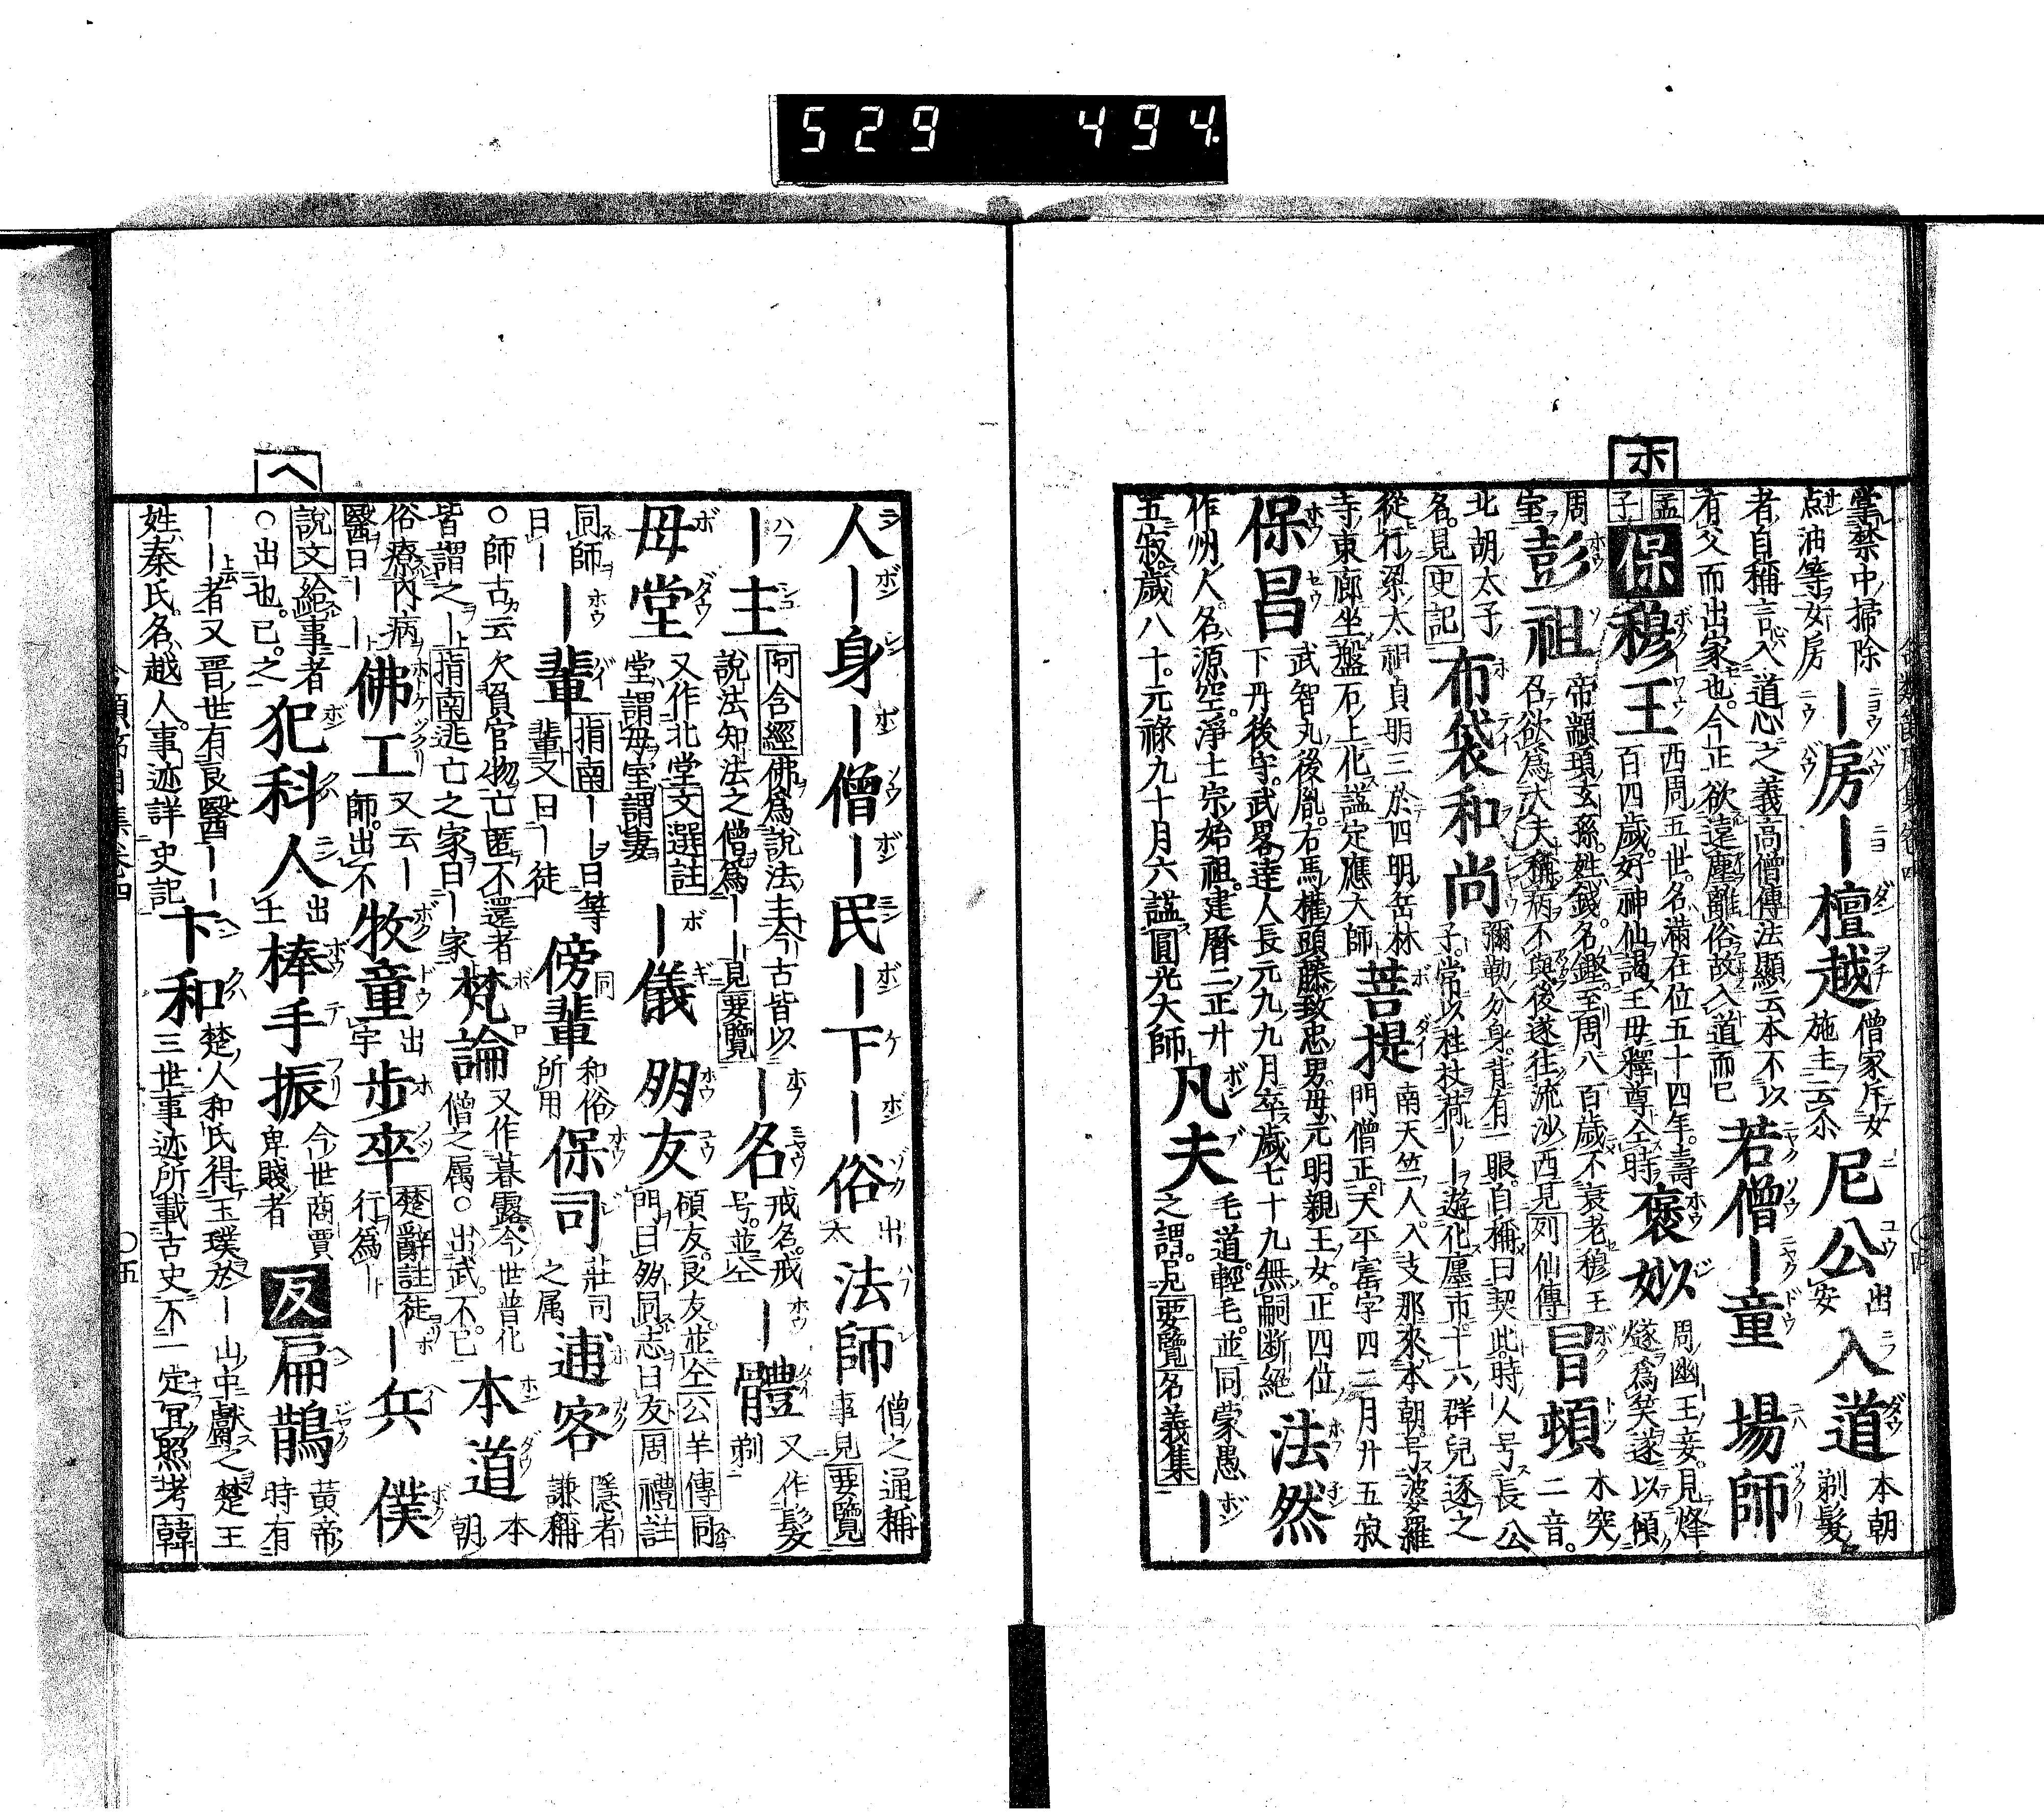 529 494.
ホ
掌禁中掃除
点油等女房
―房
―檀越
僧家斥女
施主云尒
尼公
出安
入道
本朝剃髮
者自稱言入道心之義高僧傳法顯云本不以
有父而出家也今正欲遠塵離俗故入道而已
若僧
―童
場師
孟子
保
穆王
西周五世名滿在位五十四年壽
百四歲好神仙謁王母釋尊全時
褒姒
周幽王妾見烽
燧爲笑遂以傾
周室
彭祖
帝顓頊玄孫姓錢名鏗至周八百歲不衰老穆王
召欲爲大夫稱病不與後遂往流沙西見列仙傳
冒頓
木突二音
北胡太子
名見史記
布袋和尚
彌勒分身背有一眼自稱曰契此時人号長公
子常以柱杖荷―遊化廛市十六群兒逐之
從行梁太祖貞明三於四明岳林
寺東廊坐盤石上化謚定應大師
菩提
南天竺人入支那來本朝号波羅
門僧正天平宝字四二月廿五寂
保昌
武智丸後胤右馬權頭藤致忠男母元明親王女正四位
下丹後守武畧達人長元九九月卒歲七十九無嗣断絕
法然
作州人名源空淨土宗始祖建曆二正廿
五寂歲八十元祿九十月六謚圓光大師
凡夫
毛道輕毛並同蒙愚
之謂見要覽名義集
―
人
―身
―僧
―民
―下
―俗
出太
法師
僧之通稱
事見要覽
―主
阿含經佛爲說法主今古皆以
說法知法之僧爲――見要覽
―名
戒名戒
号並仝
―體
又作髮剃
母堂
又作北堂文選註
堂謂母室謂妻
―儀
朋友
碩友良友並仝公羊傳同
門曰朋同志曰友周禮註
同師曰―
―輩
指南――曰等
輩又曰―徒
傍輩
和俗所用
保司
莊司之属
逋客
隱者謙稱
○師古云欠負官物亡匿不還者
皆謂之―指南逃亡之家曰―家
梵論
又作暮露今世普化
僧之属○出武不已
本道
本朝
俗療内病
醫曰――
佛工
又云―
師出不
牧童
出宇
步卒
楚辭註徒
行爲―
―兵
僕
ヘ
說文給事者
○出也已之
犯科人
出王
棒手振
今世商賈
卑賤者
反
扁鵲
黃帝時有
――者又晋世有良醫――
姓秦氏名越人事迹詳史記
卞和
楚人和氏得玉璞於―山中獻之楚王
三世事迹所載古史不一定冝照考韓
合類節用集卷四
○四
合類節用集卷四
○五